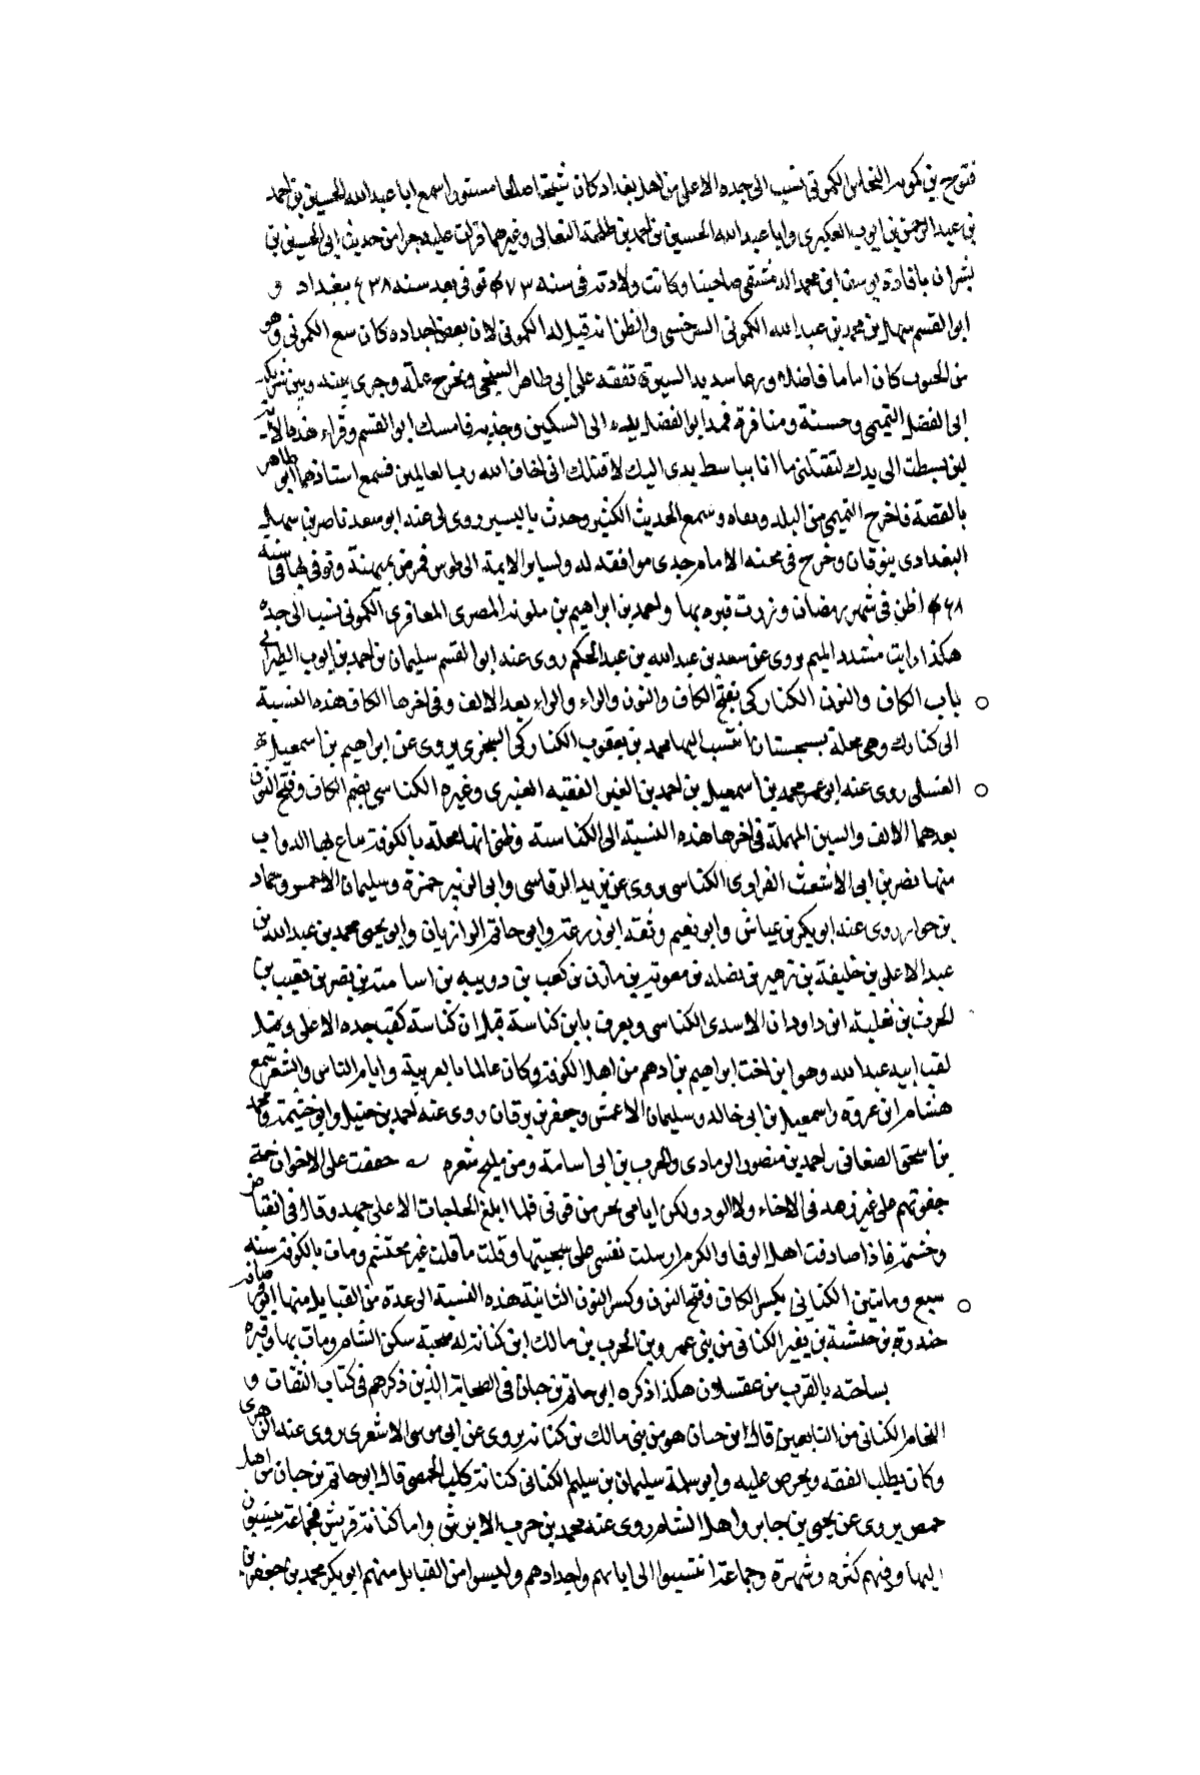 فتوح بن كمونه النحاس الكموني نسب الى جده الاعلى من اهل بغداد كان شيخا صالحا مستورا سمع ابا عبد الله الحسين بن احمد
بن عبد الرحمن بن ايوب العكبري وابا عبد الله الحسين بن احمد بن طلحة النعالي وغيرهما قرات عليه جزا من حديث ابي الحسين بن
بشران بافادة يوسف ابن محمد الدمشقي صاحبنا وكانت ولادته في سنه توفي بعد سنه ببغداد و
ابو القسم سهل بن محمد بن عبد الله الكموني السرخسي واظن انه قيل له الكموني لان بعض اجداده كان يبيع الكموني وهو
من الحبوب كان اماما فاضلا ورعا سديد السيرة تفقه على ابي طاهر السبخي وتخرج عليه وجرى بينه وبين شريكه
ابي الفضل التميمي وحسنة ومنافرة فمد ابو الفضل يده الى السكين وجذبه فامسك ابو القسم وقراء هذه الآية
لين بسطت الى يدك لتقتلني ما انا بباسط يدى اليك لاقتلك اني اخاف الله رب العالمين فسمع استاذهما ابو طاهر
بالقصة فاخرج التميمي من البلد ونفاه وسمع الحديث الكثير وحدث باليسير روى لي عنه ابو سعد ناصر بن سهل
البغدادى بنوقان وخرج في محنه الامام جدى موافقه له ولساير الايمة الى طوس فمرض بميهنة وتوفي بها في سنة
اظن في شهر رمضان وزرت قبره بها واحمد بن ابراهيم بن ملوند المصرى المعافرى الكموني نسب الى جده
هكذا رايت مشدد الميم يروى عن سعد بن عبد الله بن عبد الحكم روى عنه ابو القسم سليمان بن احمد بن ايوب الطبراني
باب الكاف والنون الكناركي بفتح الكاف والنون والراء والراء بعد الالف وفي اخرها الكاف هذه النسبة
الى كنارك وهي محلة بسجستان انتسب اليها محمد بن يعقوب الكناركي السجزى يروى عن ابراهيم بن اسمعيل
العسلي روى عنه ابو عمر محمد بن اسمعيل بن احمد بن العنبر الفقيه العنبرى وغيره الكناسي بضم الكاف وفتح النون
بعدهما الالف والسين المهملة في اخرها هذه النسبة الى الكناسة وظني انها محلة بالكوفة تباع بها الدواب
منها نصر بن ابي الاشعث الفراوى الكناسي يروى عن يزيد الرقاسي وابي الزبير حمزة وسليمان الاحمر وحماد
بن حوار روى عنه ابو بكر بن عياش وابو نعيم وثقه ابو زرعة وابو حاتم الرازيان وابو يحيى محمد بن عبد الله بن
عبد الاعلى بن خليفة بن زهير بن نضله بن معوية بن مازن بن كعب بن دويبه بن اسامة بن نصر بن قعيب بن
الحرث بن ثعلبة ابن داودان الاسدى الكناسي ويعرف بابن كناسة قيل ان كناسة لقب جده الاعلى وقيل
لقب ابيه عبد الله وهو ابن اخت ابراهيم بن ادهم من اهل الكوفة وكان عالما بالعربية وايام الناس والشعر سمع
هشام ابن عروة واسمعيل بن ابي خالد وسليمان الاعمش وجعفر بن برقان روى عنه احمد بن حنبل وابو خيثمة ومحمد
بن اسحق الصغاني واحمد بن منصور الرمادى والحرب بن ابي اسامة ومن مليح شعره حففت على الاخوان حتى
جفوتهم على غير زهد في الاخاء ولا الود ولكن ايامي تخر من قوتي فما ابلغ الحاجات الا على جهد وقال في انقباض
وحشمة فاذا صادفت اهل الوفا والكرم ارسلت نفسي على سجيتها وقلت ما قلت غير محتشم ومات بالكوفة سنه
سبع ومايتين الكناني بكسر الكاف وفتح النون وكسر النون الثانية هذه النسبة الى عدة من القبايل منها ابو قرصافه
جندرة بن خيشنة بن نفير الكناني من بني عمرو بن الحرب بن مالك ابن كنانه له صحبة سكن الشام ومات بها وقبره
بساحته بالقرب من عقسلان هكذا ذكره ابو حاتم بن حبان في الصحابة الذين ذكرهم في كتاب الثقات و
النحام الكناني من التابعين قال ابن حبان هو من بني مالك بن كنانه يروى عن ابي موسى الاشعرى روى عنه الزهرى
وكان يطلب الفقه ويحرص عليه وابو سلمة سليمان بن سليم الكناني كنانة كلب الحمصي قال ابو حاتم بن حبان من اهل
حمص يروى عن يحيى بن جابر واهل الشام روى عنه محمد بن حرب الابرش واما كنانة قريش فجماعة ينتسبون
اليها وفيهم كثره وشهرة وجماعة انتسبوا الى اباهم واجدادهم وليسوا من القبايل منهم ابو بكر محمد بن جعفر بن